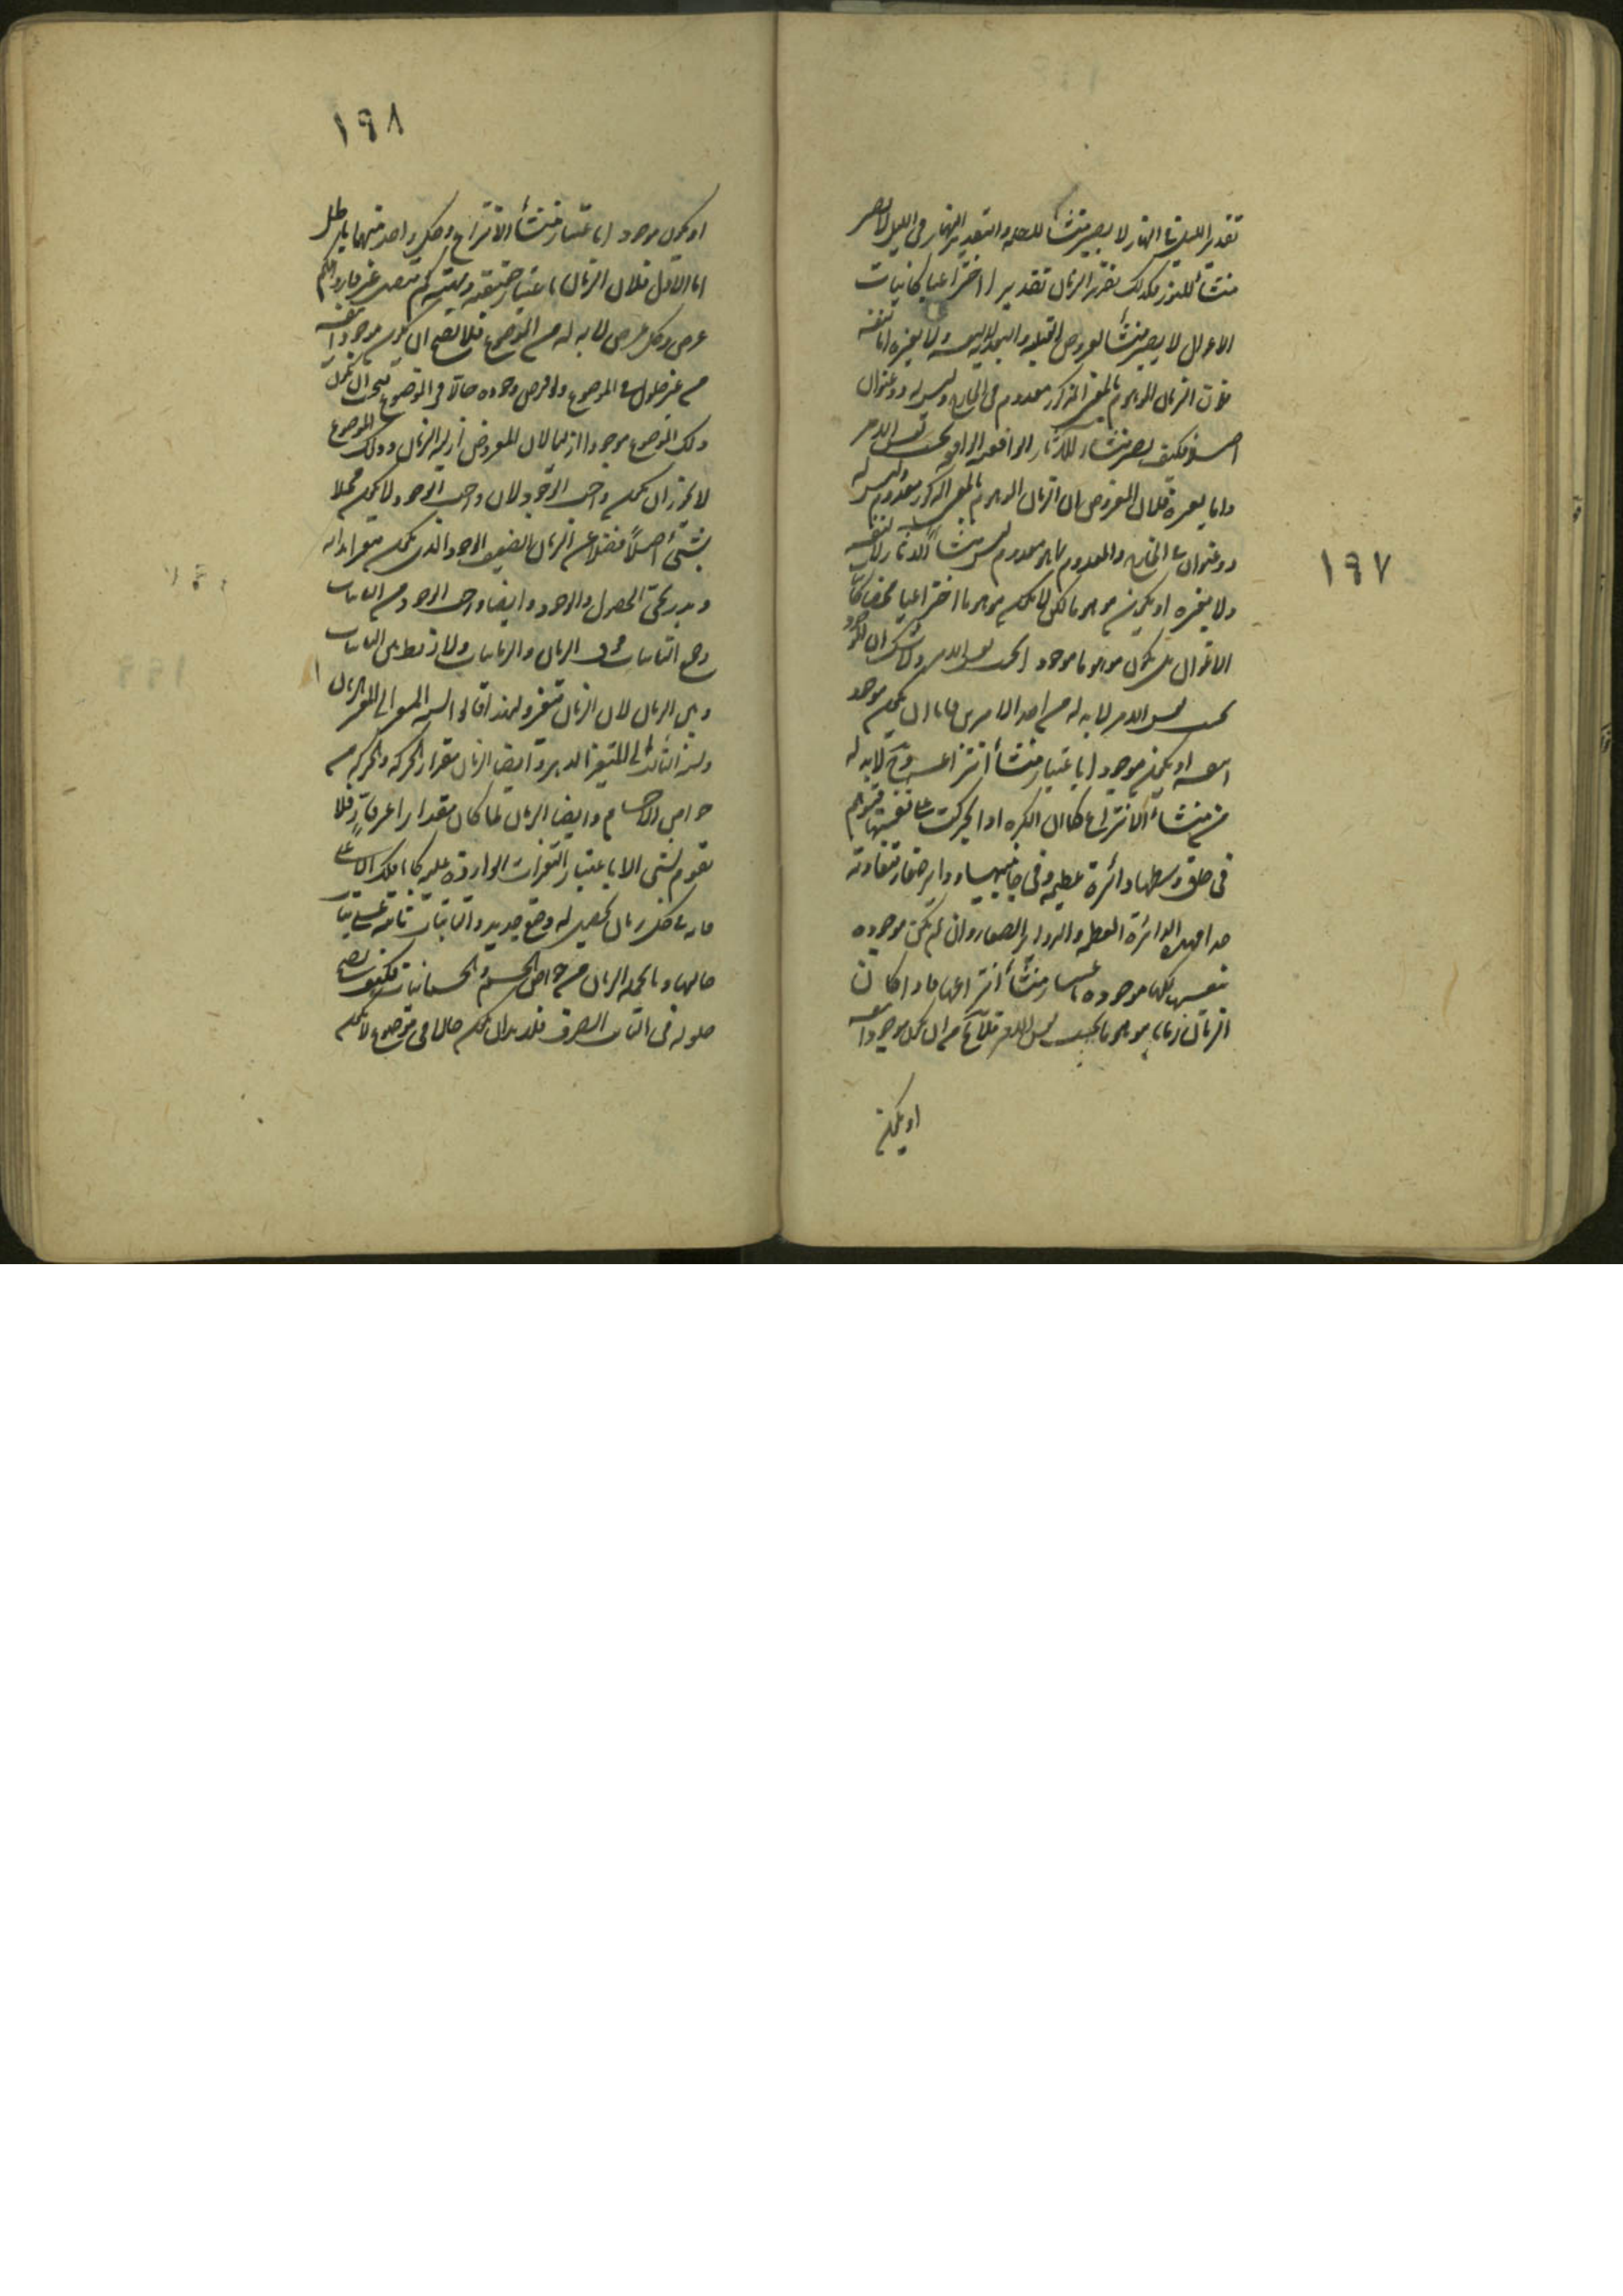 ١٩٧
تقدير الليل في النهار لا يصير منشأ للظلمة والتقدير النهار في الليل لا يصير
منشأ للنور فكذلك تقدير الزمان تقديرا اختراعيا كانياب
الاغوال لا يصير منشأ لعروض القبلية والبعدية لا لنفسه ولا لغيره اما لنفسه
فلان الزمان الموهوم بالمعنى المذكور معدوم في الخارج وليس له ذو عنوان
اصلا فكيف يصير منشأ للآثار الواقعية الذي بحسب نفس الامر
واما لغيره فلان المفروض ان الزمان الموهوم بالمعنى المذكور معدوم وليس له
ذو عنوان في الخارج والمعدوم بما هو معدوم ليس منشأ للآثار لا لنفسه
ولا لغيره او يكون موهوما لكن لا يكون موهوما اختراعيا محضا كانياب
الاغوال بل يكون موهوما موجودا بحسب نفس الامر ولا شك ان الموجود
بحسب نفس الامر لا بد له من احد الامرين فاما ان يكون موجودا
بنفسه او يكون موجودا باعتبار منشأ انتزاعه وح لا بد له
من منشأ الانتزاع كما ان الكرة اذا تحركت على نفسها فتوهم
في حاق وسطها دائرة عظيمة وفي جانبيها دواير صغار متفاوتة
فهذه الدائرة العظيمة والدواير الصغار وان لم تكن موجودة
بنفسها لكنها موجودة باعتبار منشأ انتزاعها فاذا كان
الزمان زمانا موهوما بحسب نفس الامر فلا يخ من ان يكون موجودا بنفسه
او يكون
١٩٨
او يكون موجودا باعتبار منشأ الانتزاع وكل واحد منهما باطل
اما الاول فلان الزمان باعتبار حقيقته ومهيته كم متصل غير قار والكم
عرض وكل عرض لا بد له من الموضوع فلا يصح ان يكون موجودا بنفسه
من غير حلول في الموضوع ولو فرض وجوده حالا في الموضوع فيجب ان يكون
ذلك الموضوع موجودا ازليا لان المفروض ازلية الزمان وذلك الموضوع
لا يجوز ان يكون واجب الوجود لان واجب الوجود لا يكون محلا
بشئ اصلا فضلا عن الزمان الضعيف الوجود الذي يكون متغيرا بذاته
وتدريجي الحصول والوجود وايضا واجب الوجود من الثابتات
وجميع الثابتات فوق الزمان والزمانيات ولا ارتباط بين الثابتات
وبين الزمان لان الزمان متغير ولهذا قالوا نسبة المتغير الى المتغير الزمان
ونسبة الثابت الى المتغير الدهر وايضا الزمان مقدار الحركة والحركة من
خواص الاجسام وايضا الزمان لما كان مقدارا غير قار فلا
يقوم بشئ الا باعتبار التغيرات الواردة عليه كالفلك
فان في كل زمان يحصل له وضع جديد والثابتات ثابتة على
حالها وبالجملة الزمان من خواص الجسم والجسمانيات فكيف يصح
حلوله في الثابت الصرف فلا بد ان يكون حالا في موضوع لا يكون